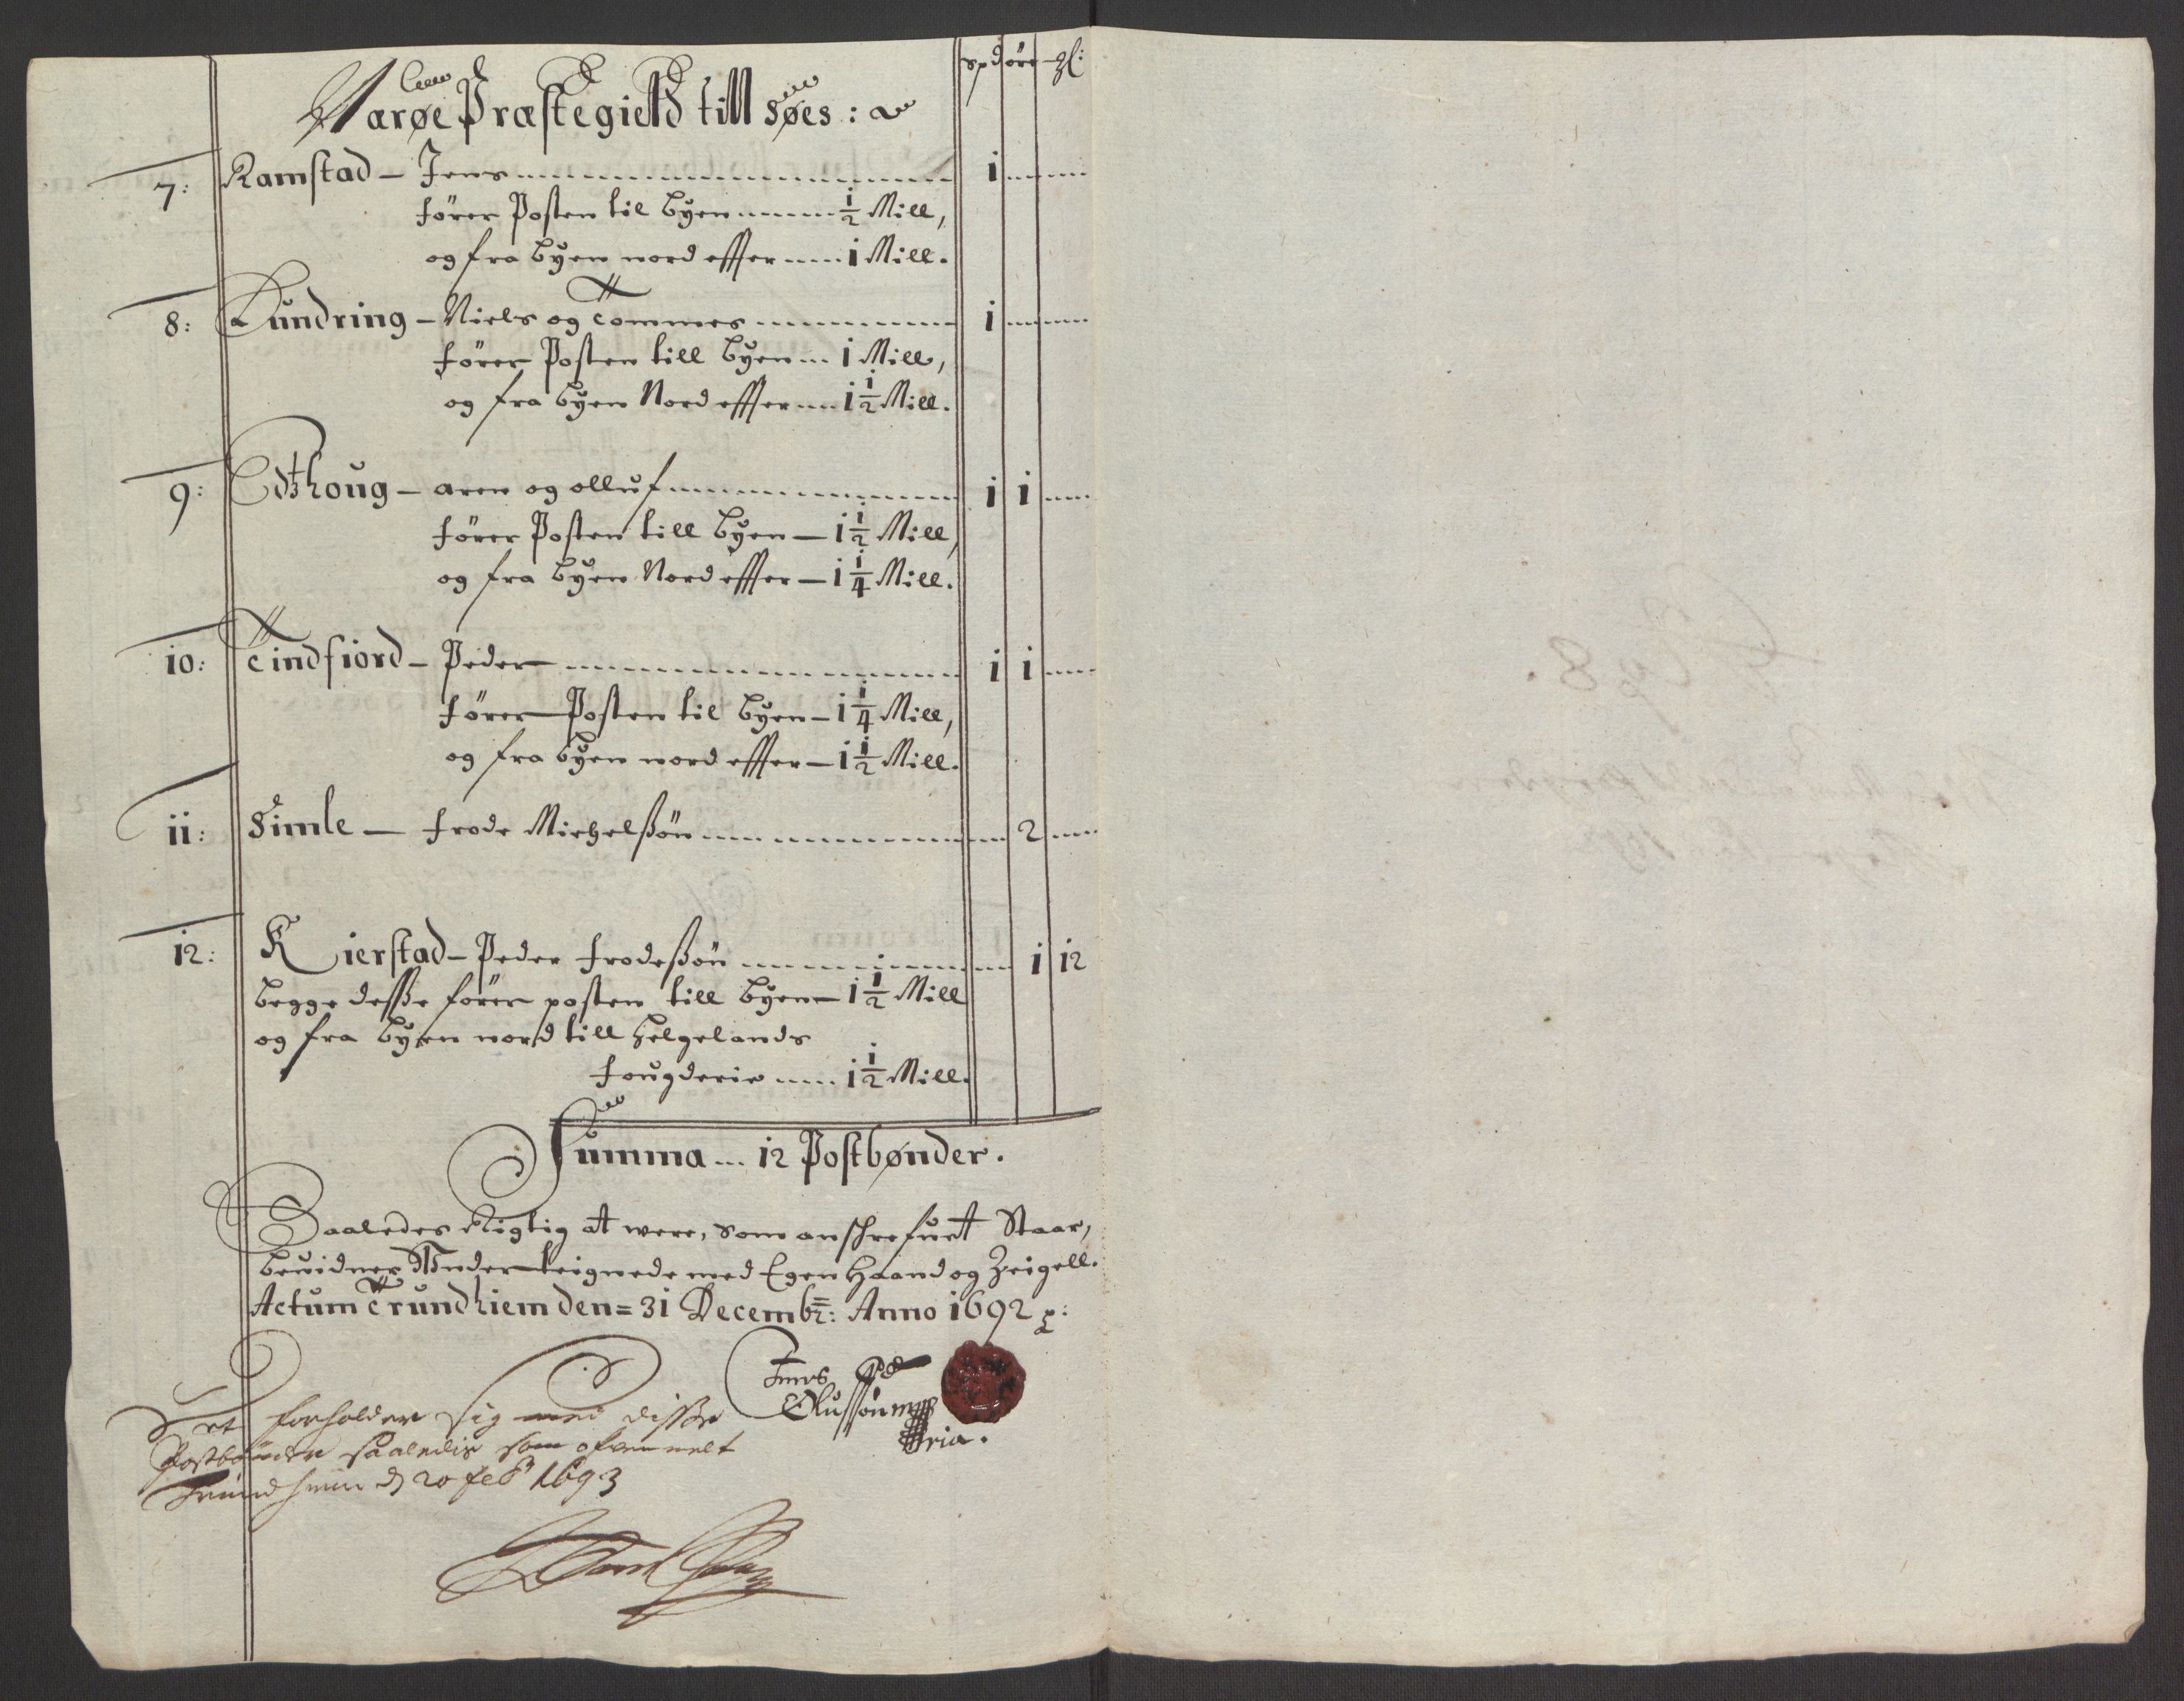 spd øre ꝫl:
Narøe Præstegield till søes:
7: Ramstad – Jens ........ 1 ........
fører Posten til Byen ........ ½ Mill,
og fra Byen nord effter ........ 1 Mill.
8: Lundring – Niels og Tommes ........ 1 ........
fører Posten till Byen ... 1 Mill,
og fra Byen Nord effter .... 1½ Mill.
9: Edshoug – aren og olluf ........ 1 1 ....
fører Posten till Byen – 1½ Mill,
og fra Byen Nord effter – 1¼ Mill.
10: Tindfiord – Peder ........ 1 1 ....
fører Posten til Byen – 1¼ Mill,
og fra Byen nord effter – 1½ Mill.
11: Simle – frode Michelßøn ........ 2 ....
12: Kierstad – Peder frodeßøn ........ 1 12
begge deße fører posten till Byen – 1½ Mill
og fra Byen nord till Helgelands
fougderie .... 1½ Mill.
Summa ... 12 Postbønder.
Saaledes Rigtig at were, som anschrefuet Staar,
beuidner Underteignede med Egen Haand og Zeigell.
Actum Trundhiem den = 31 Decembr: Anno 1692 p:
Jens
Olufsøn mp
pria.
Det forholder sig med disse
Postbønder saaledis som ofuenmelt
Trundhiem d 20 feb 1693